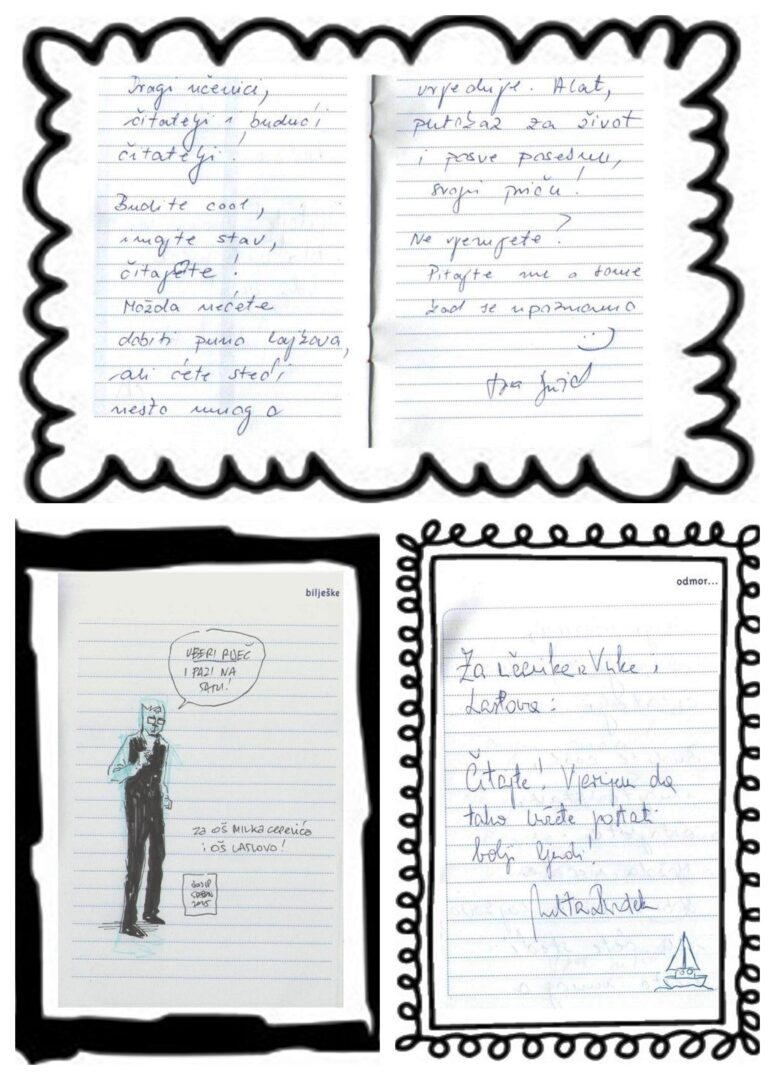 Dragi učenici,
čitatelji i budući
čitatelji!
Budite cool,
imajte stav,
čitajte!
Možda nećete
dobiti puno lajkova,
ali ćete steći
nešto mnogo
vrjednije. Alat,
putokaz za život
i posve posebnu,
svoju priču!
Ne vjerujete?
Pitajte me o tome
kad se upoznamo
:)
bilješke
UBERI RIJEČ
I PAZI NA
ZA OŠ MILKA CEPELIĆA
I OŠ LASLOVO!
2015
odmor...
Za učenike Vuke i
Laslova:
Čitajte! Vjerujem da
tako možete postati
bolji ljudi!